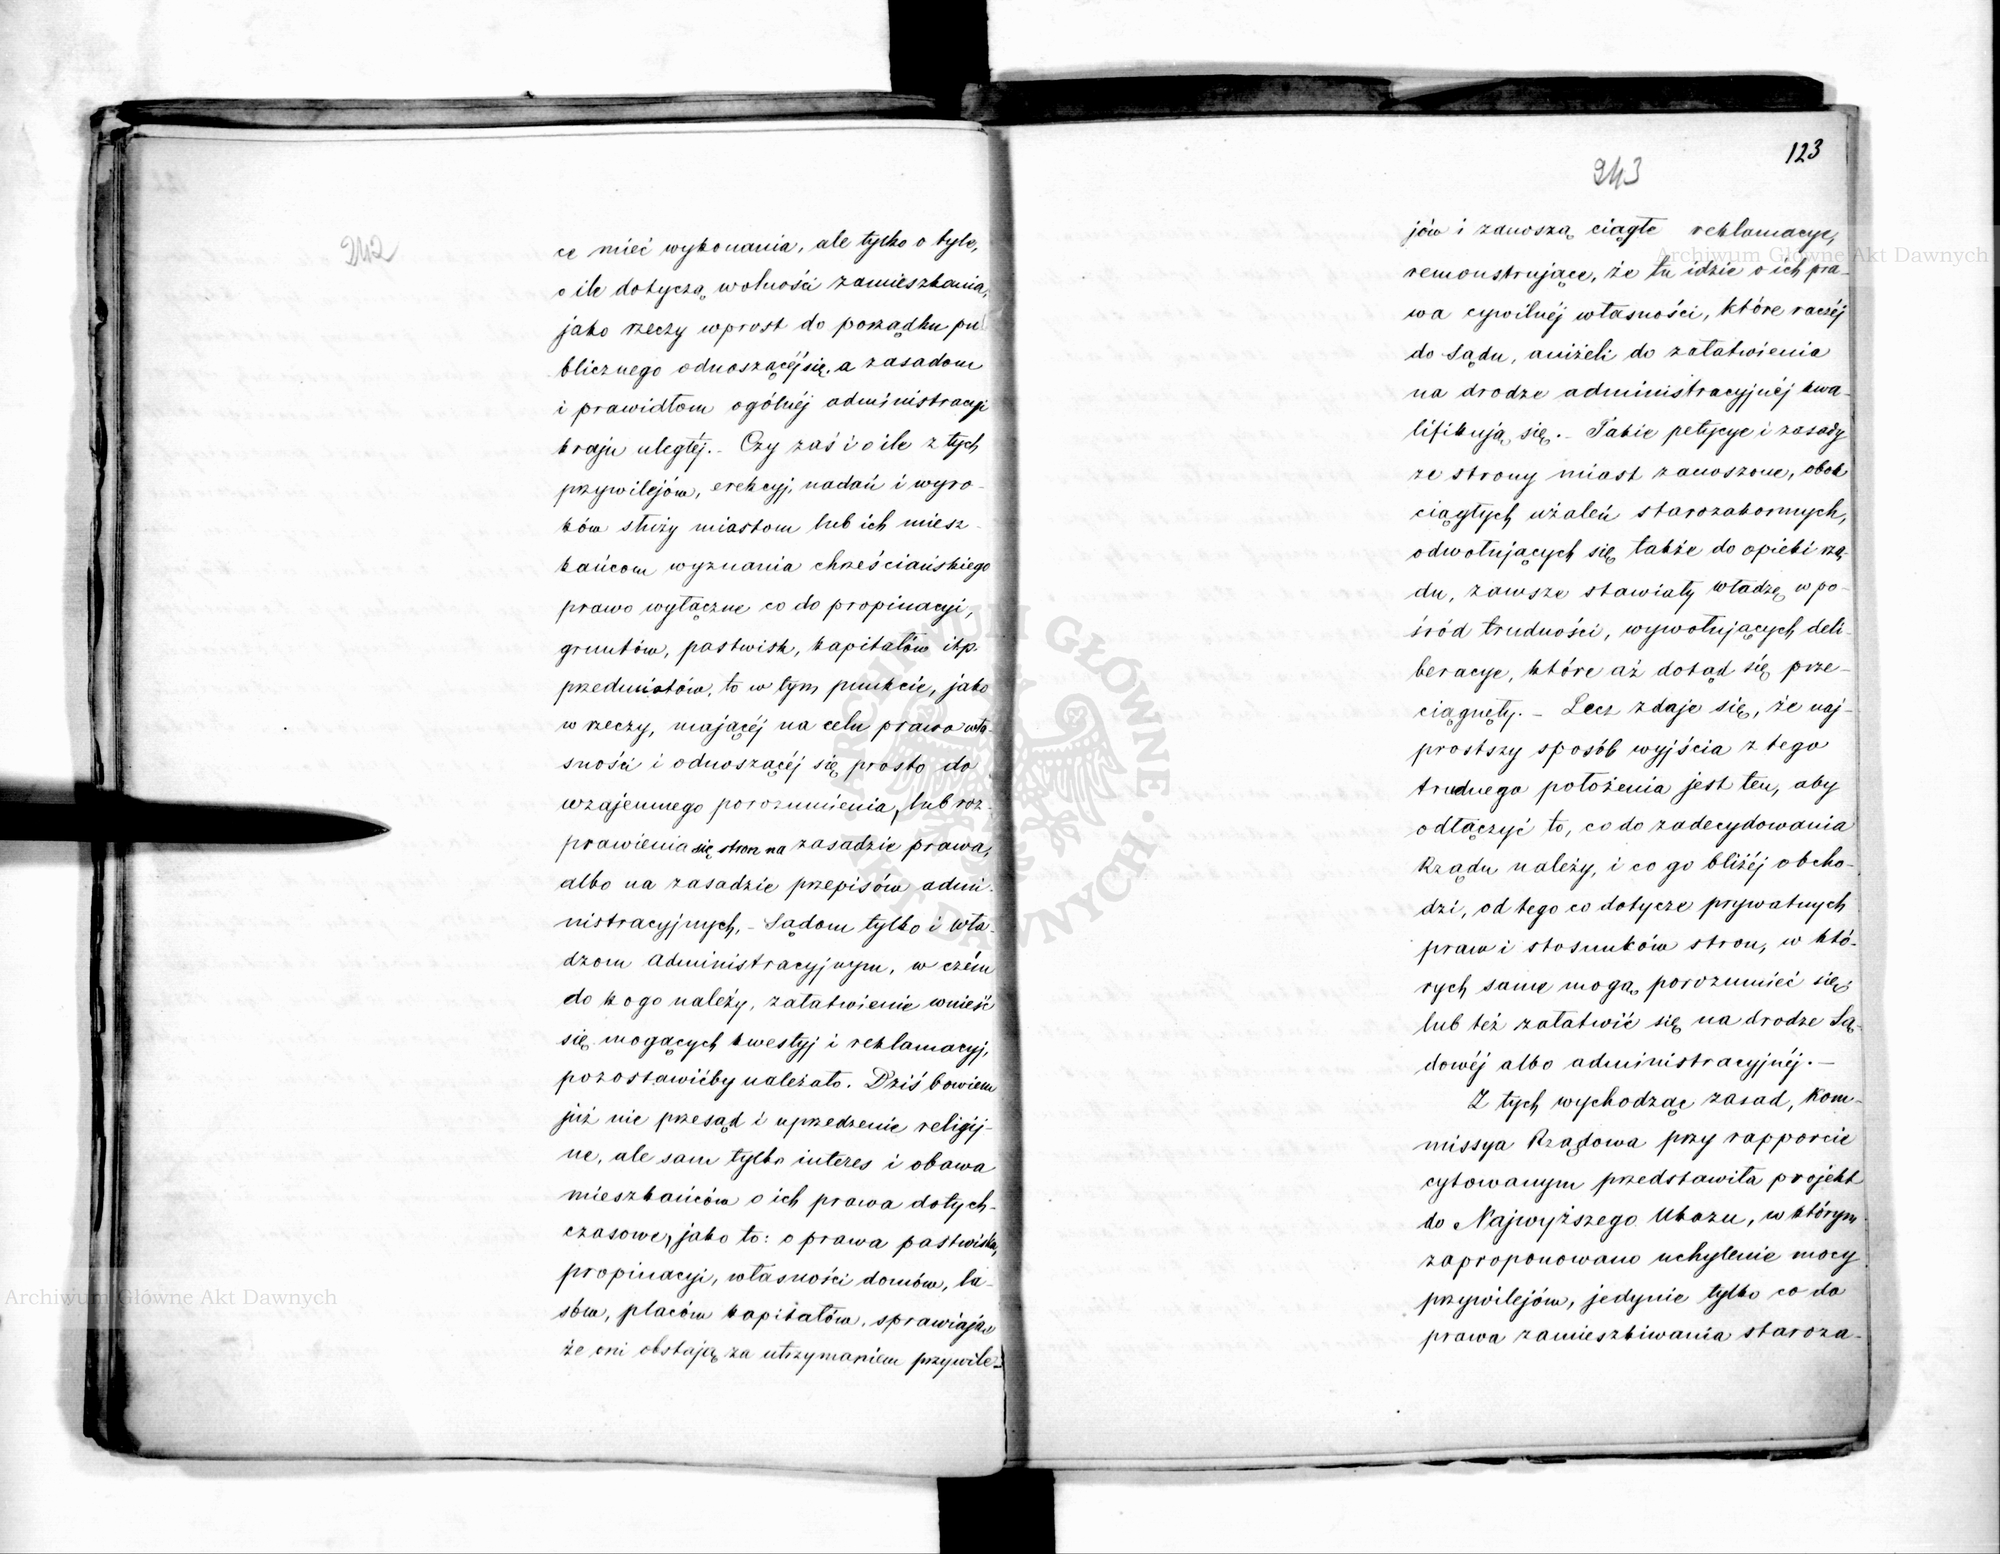 242
ce mieć wykonania, ale tylko o tyle,
o ile dotyczą wolności zamieszkania,
jako rzeczy wprost do porządku pu
blicznego odnoszącéj się, a zasadom
i prawidłom ogólnéj administracyi
kraju uległéj. – Czy zaś i o ile z tych
przywilejów, erekcyj, nadań i wyro-
ków służy miastom lub ich miesz-
kańcom wyznania chrześciańskiego
prawo wyłączne co do propinacyi,
gruntów, pastwisk, kapitałów itp.
przedmiotów, to w tym punkcie, jako
w rzeczy, mającéj na celu prawo wła-
sności i odnoszącéj się prosto do
wzajemnego porozumienia, lub roz-
prawienia się stron na zasadzie prawa,
albo na zasadzie przepisów admi-
nistracyjnych, – Sądom tylko i wła-
dzom administracyjnym, w czém
do kogo należy, załatwienie wnieść
się mogących kwestyj i reklamacyj,
pozostawićby należało. Dziś bowiem
już nie przesąd i uprzedzenie religij-
ne, ale sam tylko interes i obawa
mieszkańców o ich prawa dotych-
czasowe, jako to: o prawa pastwiska,
propinacyi, własności domów, la-
sów, placów kapitałów, sprawiają
że oni obstają za utrzymaniem przywile-
123
243
jów i zanoszą ciągłe reklamacye,
remonstrujące, że tu idzie o ich pra-
wa cywilnéj własności, które raczéj
do Sądu, aniżeli do załatwienia
na drodze administracyjnéj kwa-
lifikują się. – Takie petycye i zasady
ze strony miast zanoszone, obok
ciągłych użaleń starozakonnych,
odwołujących się także do opieki rzą-
du, zawsze stawiały władzę w po-
śród trudności, wywołujących deli-
beracye, które aż dotąd się prze-
ciągnęły. – Lecz zdaje się, że naj-
prostszy sposób wyjścia z tego
trudnego położenia jest ten, aby
odłączyć to, co do zadecydowania
Rządu należy, i co go bliżéj obcho-
dzi, od tego co dotycze prywatnych
praw i stosunków stron, w któ-
rych same mogą porozumieć się,
lub też załatwić się na drodze Są-
dowéj albo administracyjnéj. –
Z tych wychodząc zasad, Kom-
missya Rządowa przy rapporcie
cytowanym przedstawiła projekt
do Najwyższego Ukazu, w którym
zaproponowano uchylenie mocy
przywilejów, jedynie tylko co do
prawa zamieszkiwania staroza-
Archiwum Główne Akt Dawnych
Archiwum Główne Akt Dawnych
ARCHIWUM GŁÓWNE AKT DAWNYCH